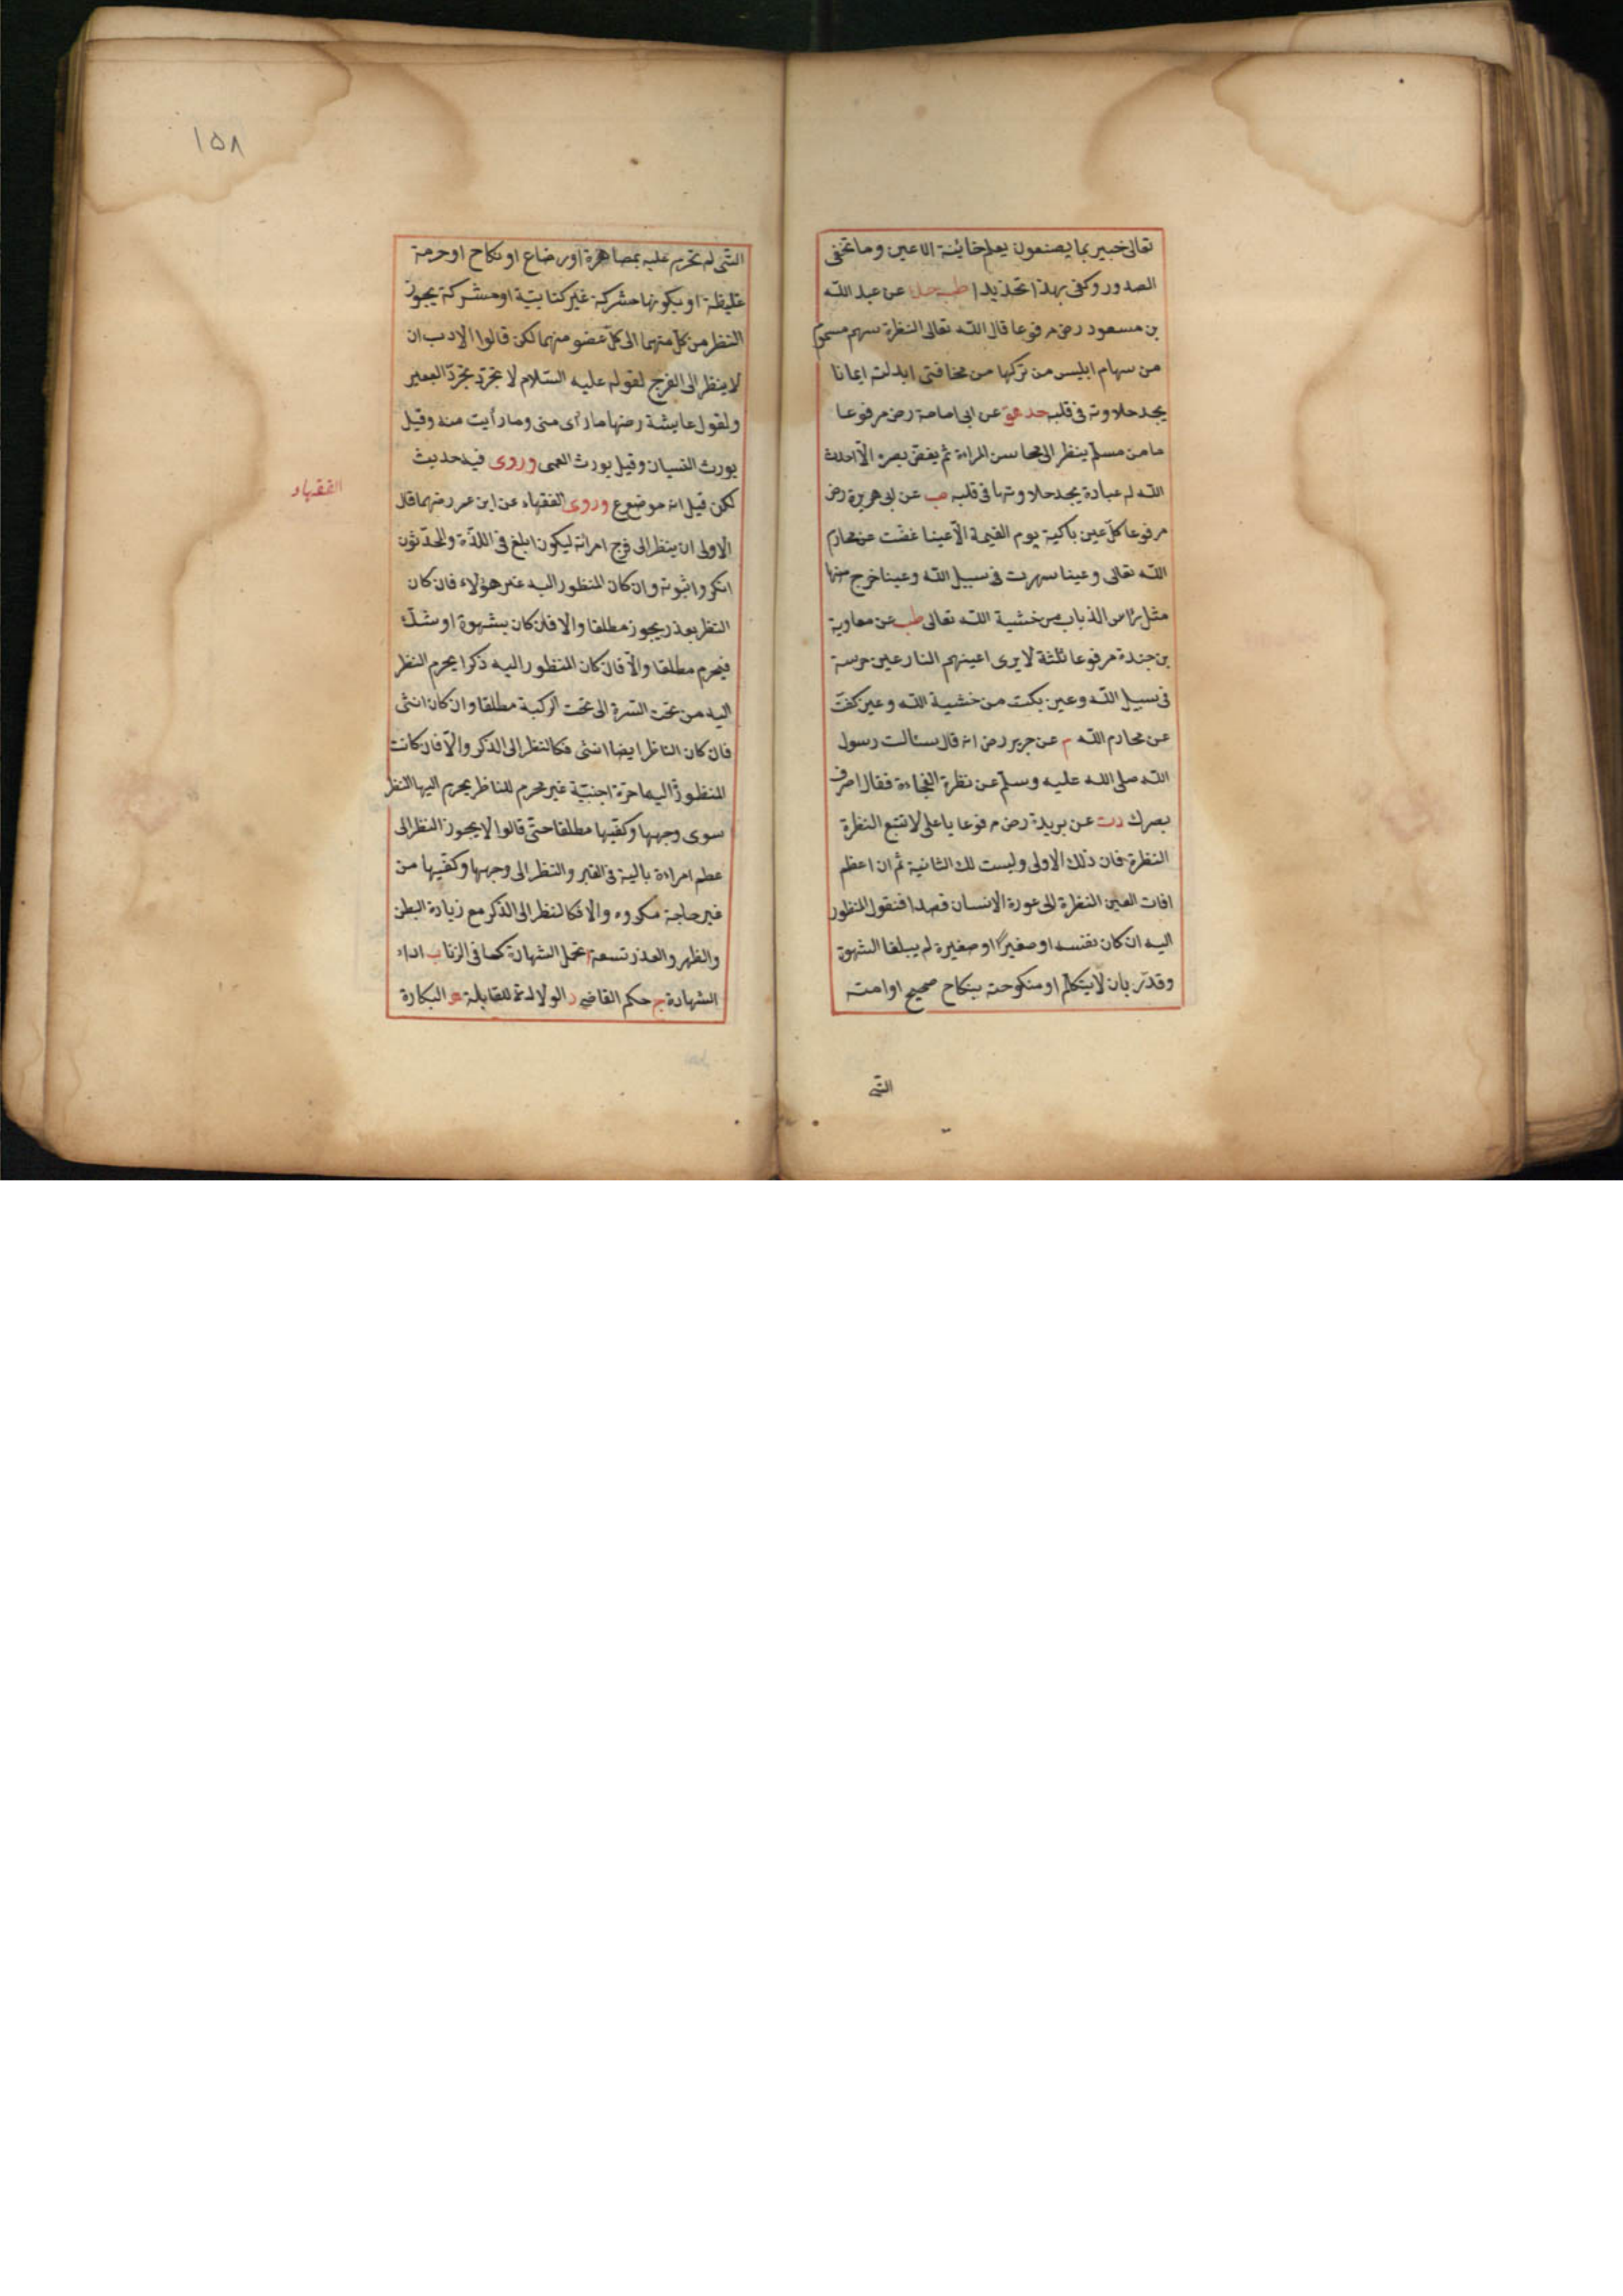 تعالى خبير بما يصنعون يعلم خائنة الاعين وما تخفى
الصدور وكفى بهذا تحذيدا طب حك عن عبد الله
بن مسعود رض مرفوعا قال الله تعالى النظرة سهم مسموم
من سهام ابليس من تركها من مخافتى ابدلته ايمانا
يجد حلاوته فى قلبه حد هق عن ابى امامة رض مرفوعا
ما من مسلم ينظر الى محاسن المراءة ثم يغض بصره الا احدث
الله له عبادة يجد حلاوتها فى قلبه صب عن ابى هريرة رض
مرفوعا كل عين باكية يوم القيمة الا عينا غضت عن محارم
الله تعالى وعينا سهرت فى سبيل الله وعينا خرج منها
مثل رأس الذباب من خشية الله تعالى طب عن معاوية
بن جندة مرفوعا ثلثة لا يرى اعينهم النار عين حرسة
فى سبيل الله وعين بكت من خشية الله وعين كفت
عن محارم الله م عن جرير رض انه قال سئالت رسول
الله صلى الله عليه وسلم عن نظرة الفجاءة فقال اصرف
بصرك دت عن بريدة رض مرفوعا يا على لا تتبع النظرة
النظرة فان ذلك الاولى وليست لك الثانية ثم ان اعظم
افات العين النظرة الى عورة الانسان قصدا فنقول المنظور
اليه ان كان نفسه او صغيرا او صغيرة لم يبلغا الشهوة
وقدر بان لا يتكلم او منكوحته بنكاح صحيح او امته
التى
١٥٨
التى لم تحرم عليه بمصاهرة او رضاع او نكاح او حرمة
غليظة او بكونها مشركة غير كتابية او مشركة يجوز
النظر من كل منهما الى كل عضو منهما لكن قالوا الادب ان
لا ينظر الى الفرج لقوله عليه السلام لا تجرد تجرد البعير
ولقول عايشة رضها ما رأى منى وما رأيت منه وقيل
يورث النسيان وقيل يورث العمى وروى فيه حديث
لكن قيل انه موضوع وروى الفقهاء عن ابن عمر رضهما قال
الفقهاء
الاولى ان ينظر الى فرج امرأته ليكون ابلغ فى اللذة والمحدثون
انكروا ثبوته وان كان المنظور اليه غير هؤلاء فان كان
النظر بعذر يجوز مطلقا والا فان كان بشهوة او شك
فيحرم مطلقا والا فان كان المنظور اليه ذكرا يحرم النظر
اليه من تحت السرة الى تحت الركبة مطلقا وان كان انثى
فان كان الناظر ايضا انثى فكالنظر الى الذكر والا فان كانت
المنظورة اليها حرة اجنبية غير محرم للناظر يحرم اليها النظر
سوى وجهها وكفيها مطلقا حتى قالوا لا يجوز النظر الى
عظم امراءة بالية فى القبر والنظر الى وجهها وكفيها من
غير حاجة مكروه والا فكالنظر الى الذكر مع زيادة البطن
والظهر والعذر تسعة ا تحمل الشهادة كما فى الزنا ب اداء
الشهادة ج حكم القاضى د الولادة للقابلة ه البكارة